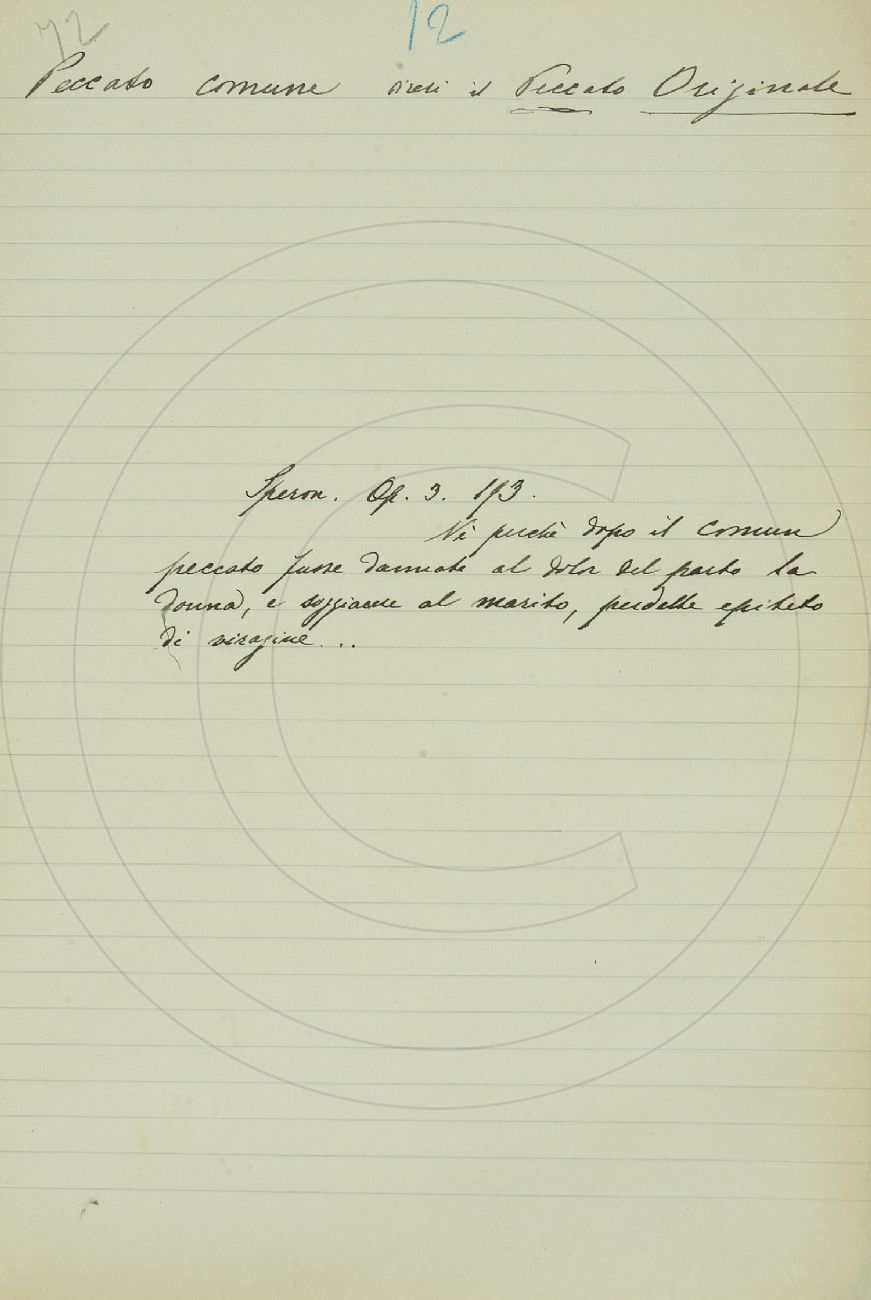 72 12
Peccato comune dicesi il Peccato Originale
Speron. Op. 3.
Nè perchè dopo il comun
peccato fusse dannata al dolor del parto la
donna, e soggiacere al marito, perdette epiteto
di viragine...